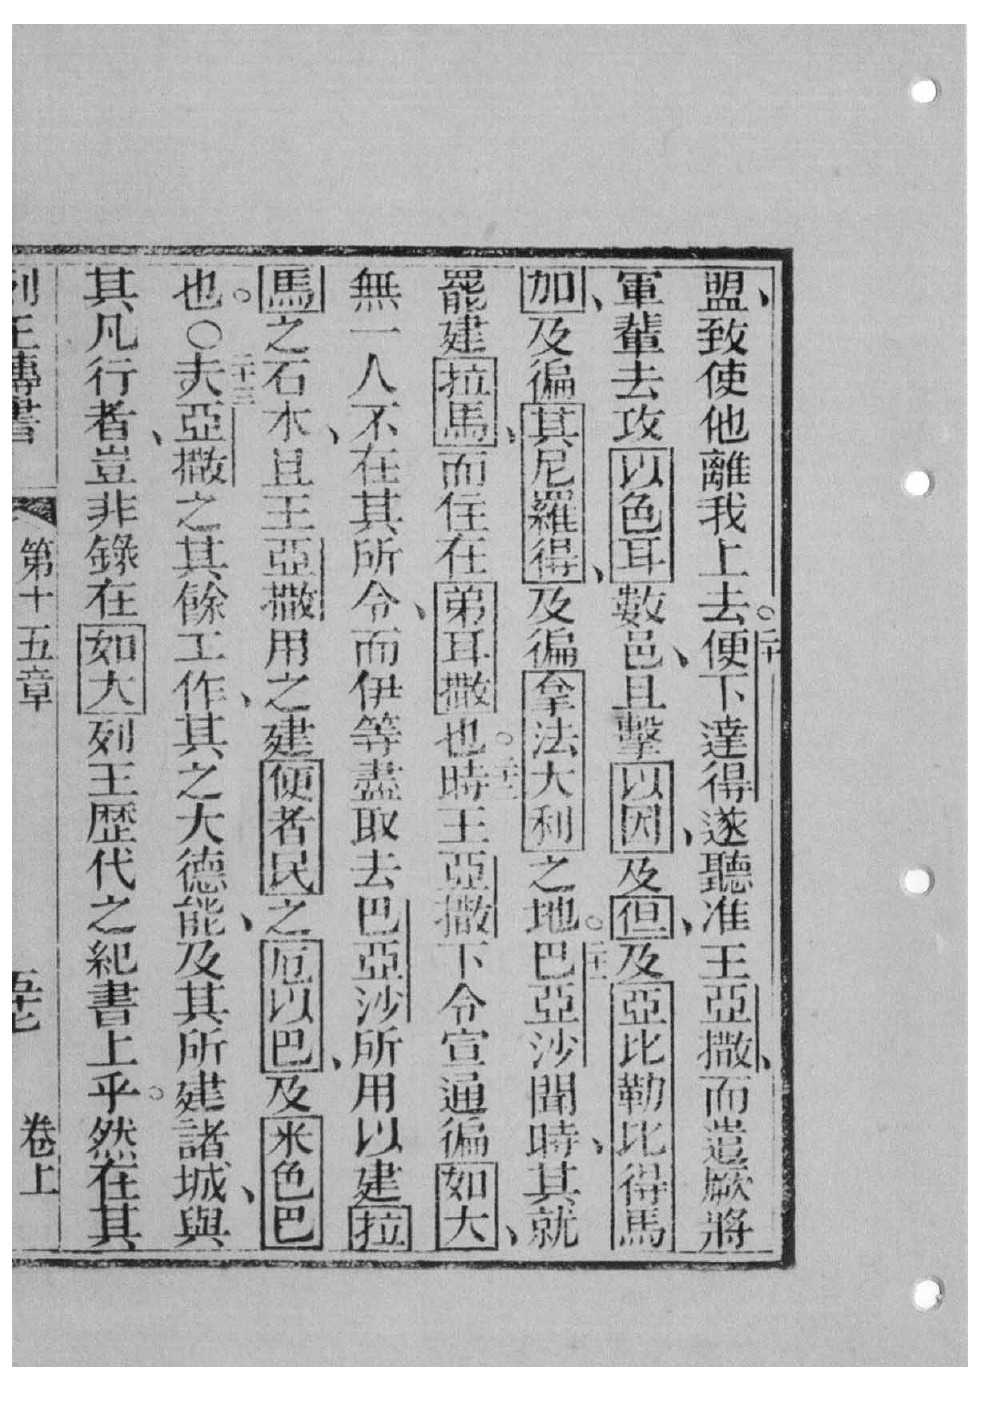 盟、致使他離我上去。二十便下達得遂聽准王亞撒、而遣厥將
軍輩去攻以色耳數邑、且擊以因、及但、及亞比勒比得馬
加、及徧其尼羅得、及徧拿法大利之地。二十一巴亞沙聞時、其就
罷建拉馬、而住在弟耳撒也。二十二時王亞撒下令宣通徧如大、
無一人不在其所令、而伊等盡取去巴亞沙所用以建拉
馬之石木、且王亞撒用之建便者民之厄以巴、及米色巴
也。○二十三夫亞撒之其餘工作、其之大德能、及其所建諸城、與
其凡行者、豈非錄在如大列王歷代之紀書上乎。然在其
列王傳書 第十五章 卷上